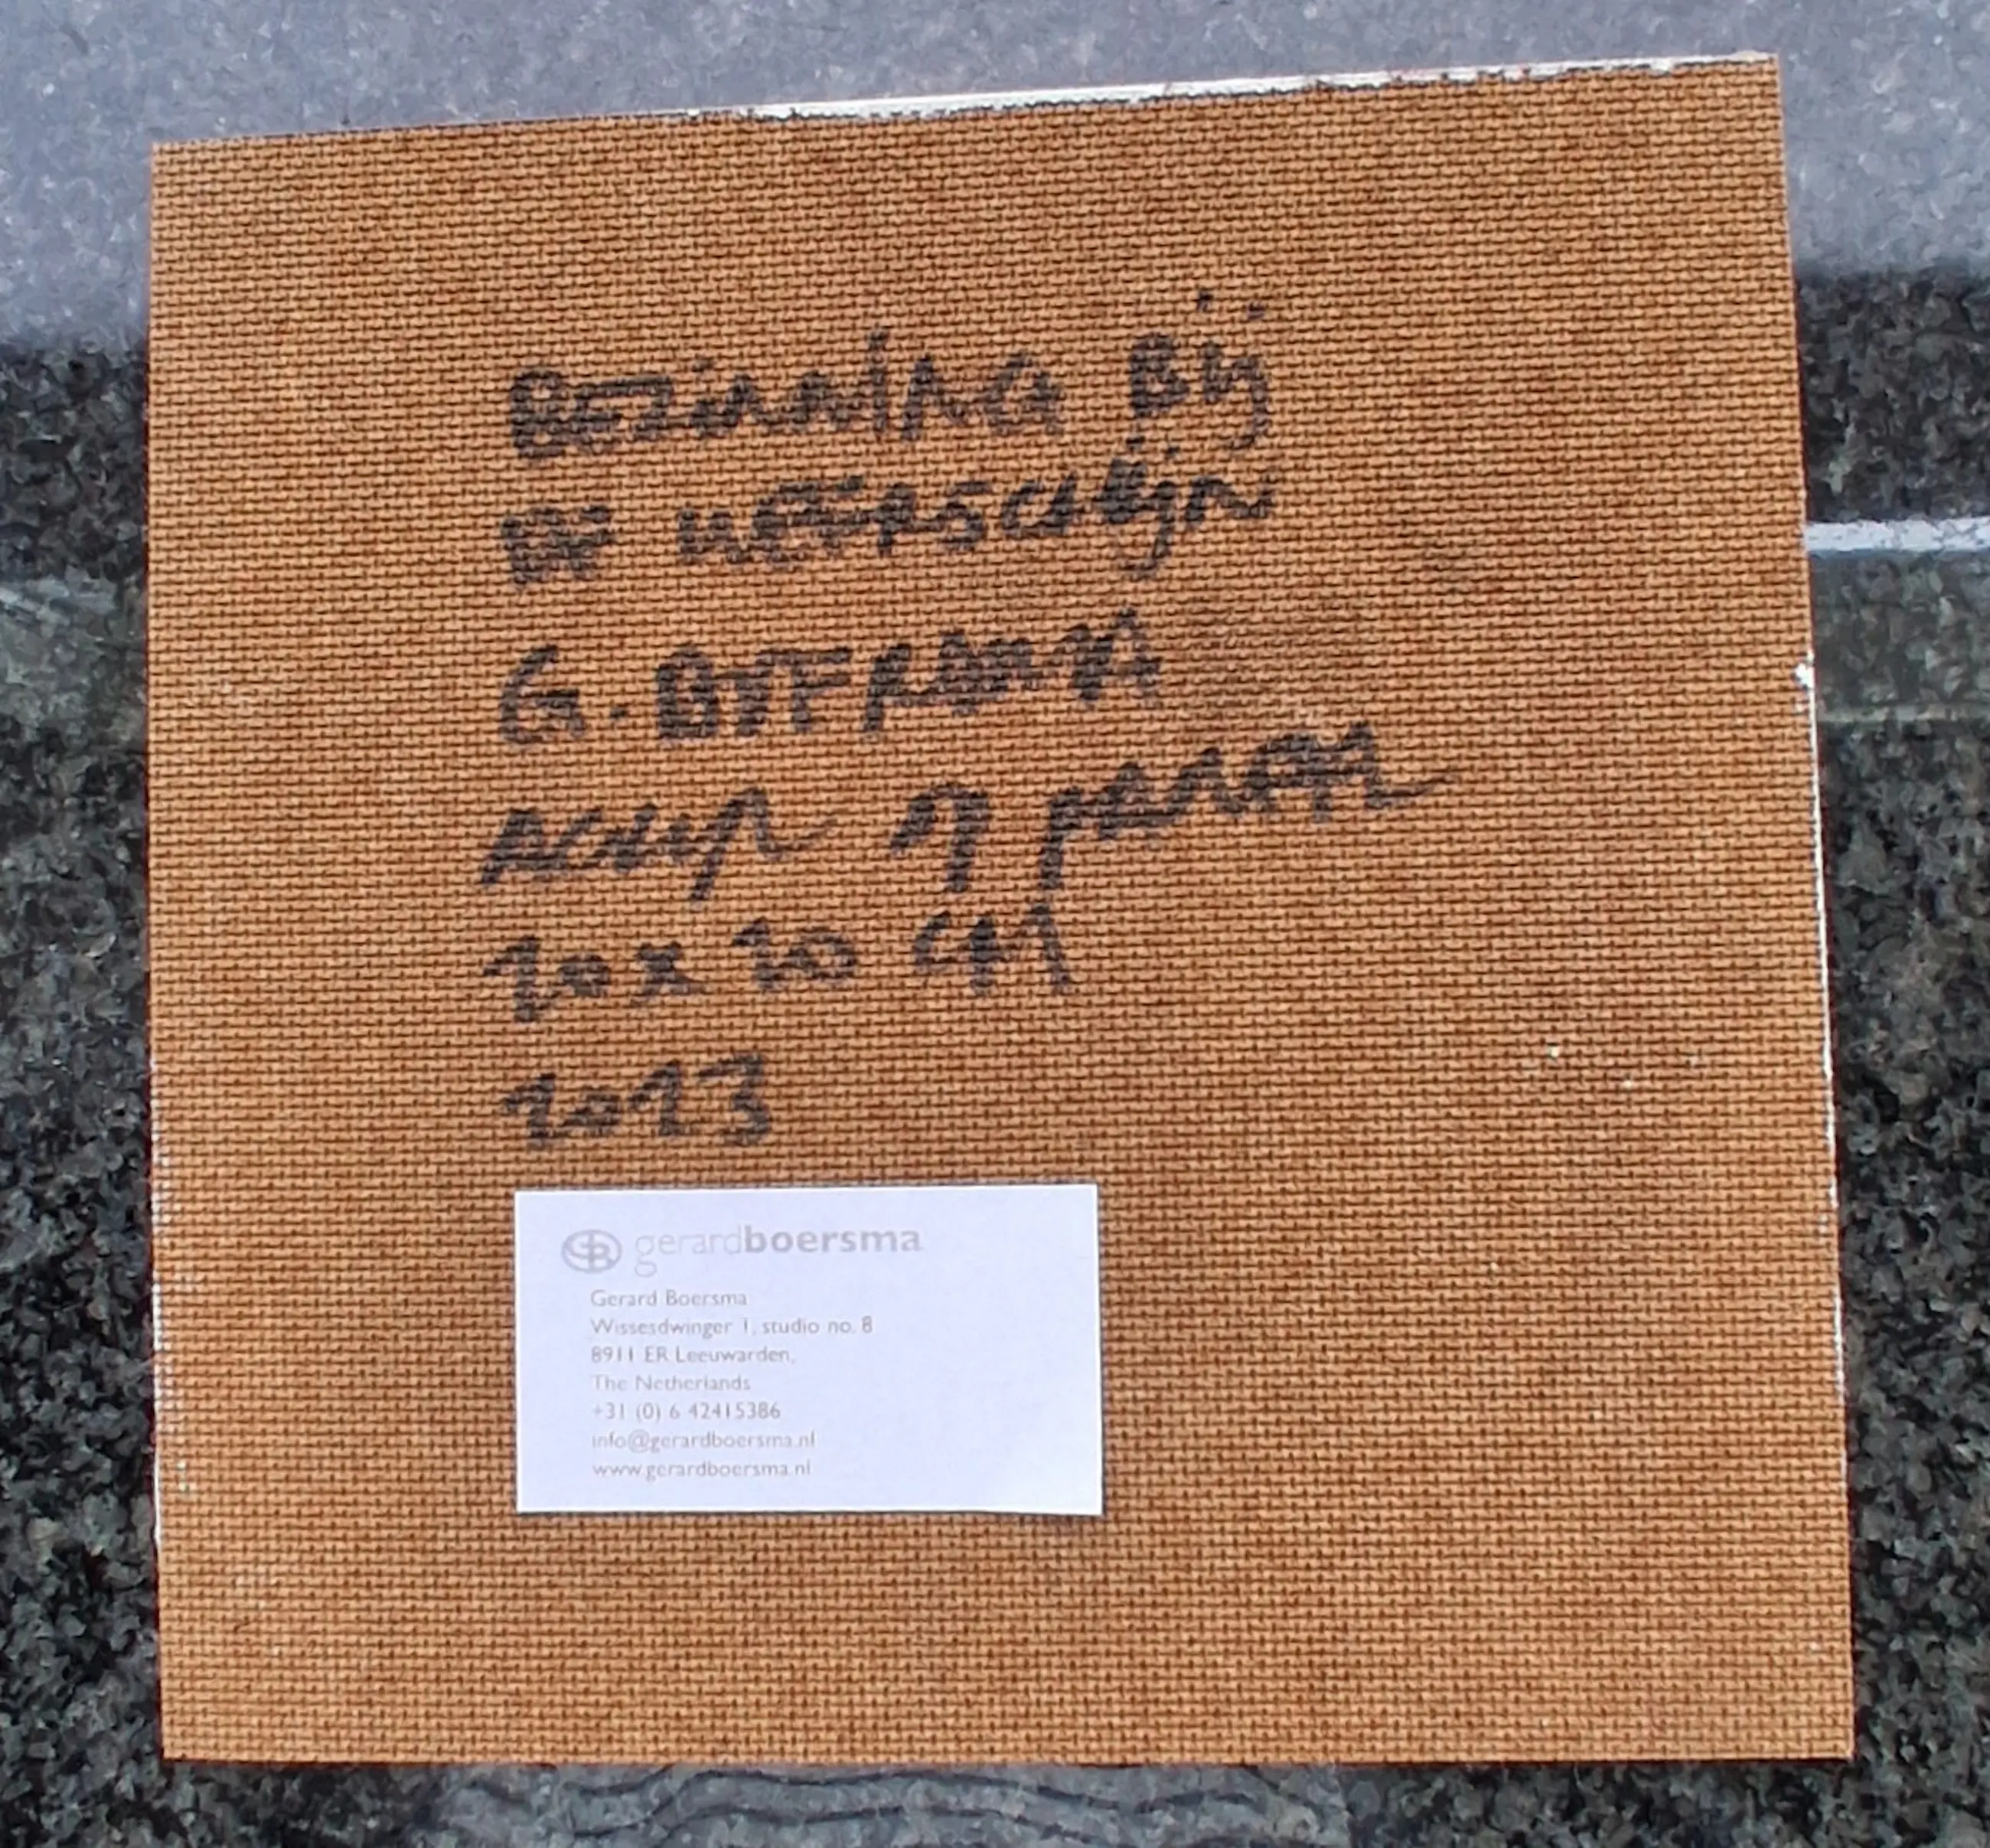 BEZINNING BIJ
DE WEERSCHIJN
G. BOERSMA
ACRYL OP PANEEL
20 x 20 CM
2023
gerardboersma
Gerard Boersma
Wissesdwinger 1, studio no. 8
8911 ER Leeuwarden,
The Netherlands
+31 (0) 6 42415386
info@gerardboersma.nl
www.gerardboersma.nl